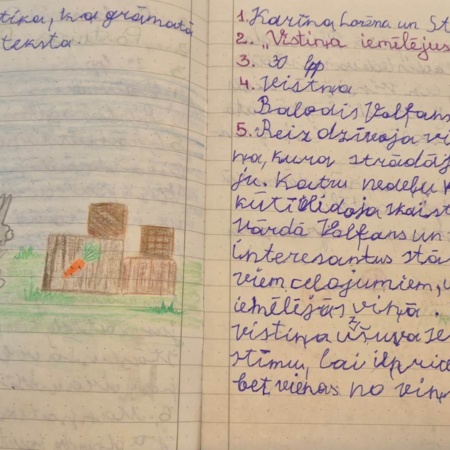 tika, ka grāmatā
teksta.
1. Karīna Lorēna un St
2. "Vistiņa iemīlējus
3. 30 lpp
4. Veistņa
Balodis Volfans
5. Reiz dzīvoja vi
ņa, kura strādāj
ju. Katru nedēļu
kūti lidoja skaist
vārdā Volfans un
interesantus stā
viem ceļojumiem, u
iemīlējās viņā.
vistiņa uzšuva se
stīmu, lai iepriec
bet vienas no viņ